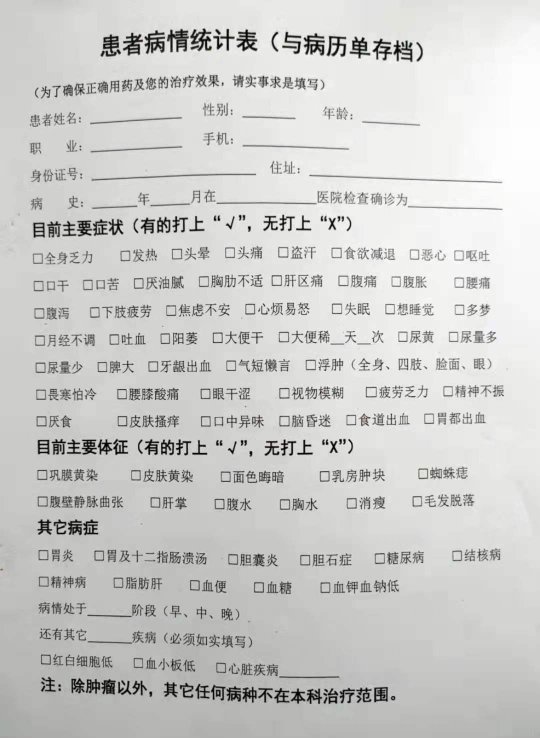 患者病情统计表（与病历单存档）
（为了确保正确用药及您的治疗效果，请实事求是填写）
患者姓名：__________ 性别：______ 年龄：______
职 业：__________ 手机：____________
身份证号：__________________ 住址：__________________
病 史：______年______月在____________医院检查确诊为____________
目前主要症状（有的打上“√”，无打上“X”）
□全身乏力 □发热 □头晕 □头痛 □盗汗 □食欲减退 □恶心 □呕吐
□口干 □口苦 □厌油腻 □胸肋不适 □肝区痛 □腹痛 □腹胀 □腰痛
□腹泻 □下肢疲劳 □焦虑不安 □心烦易怒 □失眠 □想睡觉 □多梦
□月经不调 □吐血 □阳萎 □大便干 □大便稀__天__次 □尿黄 □尿量多
□尿量少 □脾大 □牙龈出血 □气短懒言 □浮肿（全身、四肢、脸面、眼）
□畏寒怕冷 □腰膝酸痛 □眼干涩 □视物模糊 □疲劳乏力 □精神不振
□厌食 □皮肤搔痒 □口中异味 □脑昏迷 □食道出血 □胃都出血
目前主要体征（有的打上“√”，无打上“X”）
□巩膜黄染 □皮肤黄染 □面色晦暗 □乳房肿块 □蜘蛛痣
□腹壁静脉曲张 □肝掌 □腹水 □胸水 □消瘦 □毛发脱落
其它病症
□胃炎 □胃及十二指肠溃汤 □胆囊炎 □胆石症 □糖尿病 □结核病
□精神病 □脂肪肝 □血便 □血糖 □血钾血钠低
病情处于______阶段（早、中、晚）
还有其它______疾病（必须如实填写）
□红白细胞低 □血小板低 □心脏疾病________
注：除肿瘤以外，其它任何病种不在本科治疗范围。